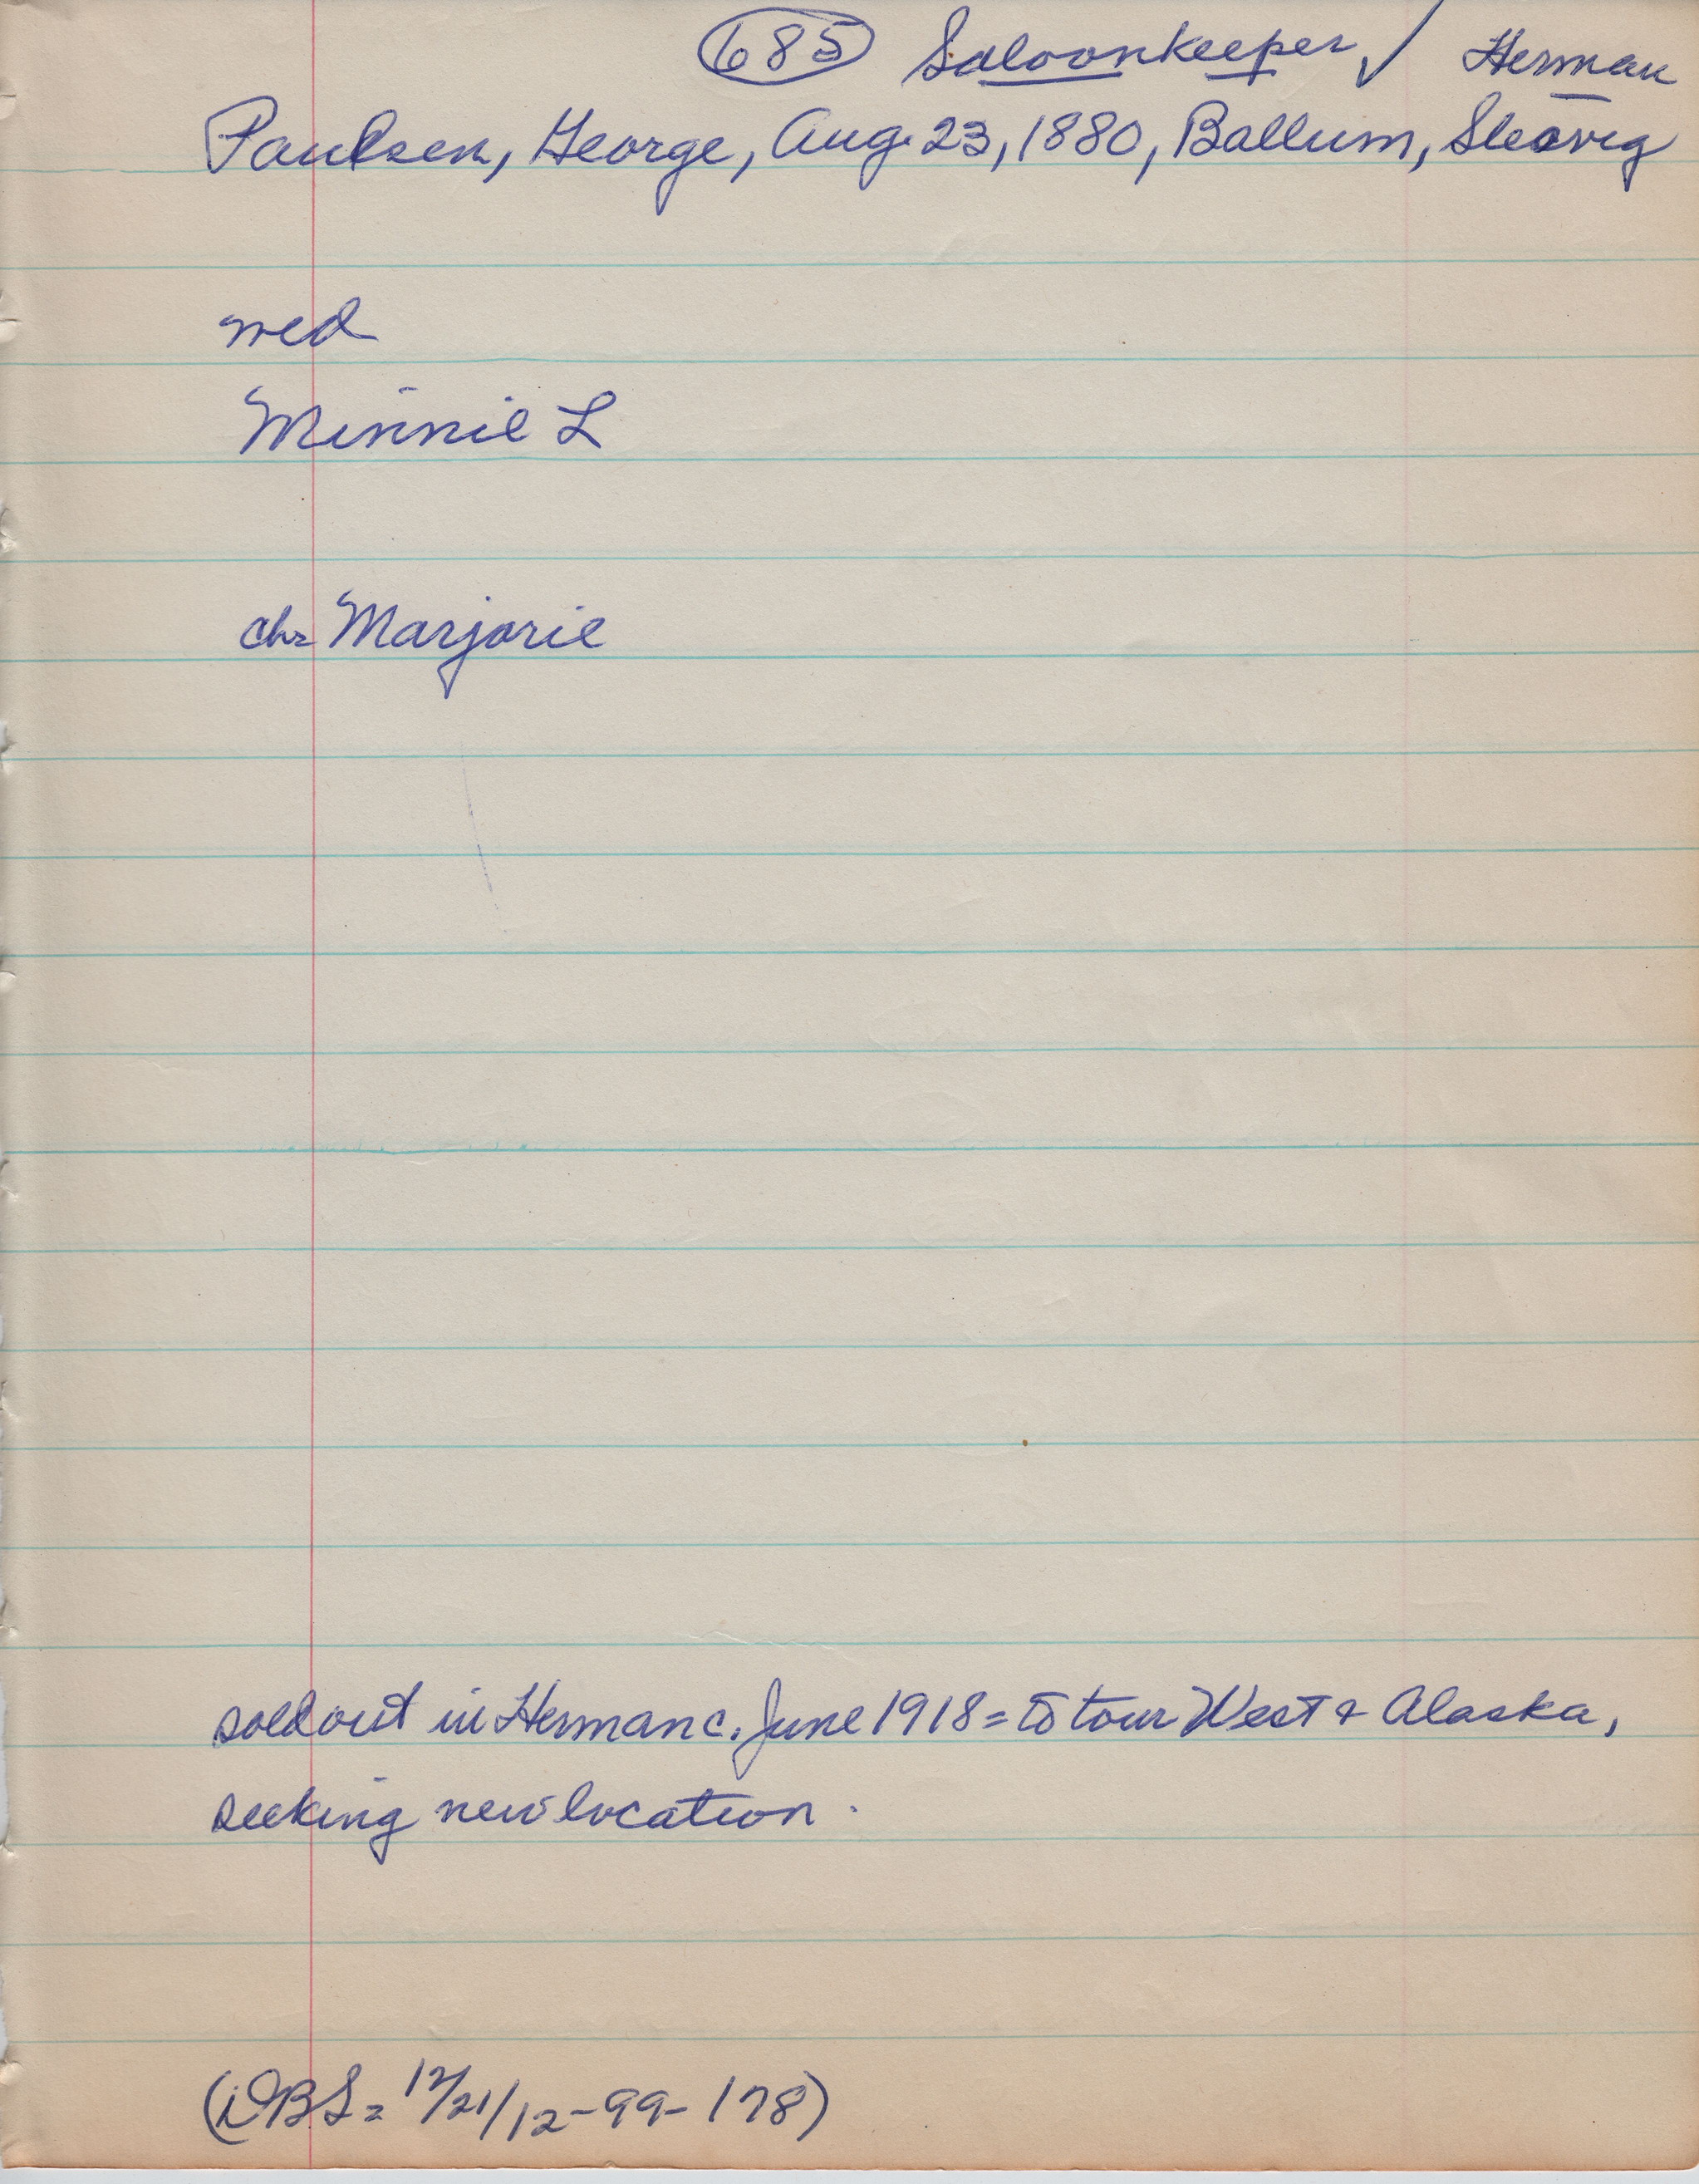 685 Saloonkeeper ✓ Herman
Paulsen, George, Aug. 23, 1880, Ballum, Slesvig
wed
Minnie L
ch= Marjorie
sold out in Herman c. June 1918 = to tour West & Alaska,
seeking new location.
(DBS = 12/21/12-99-178)